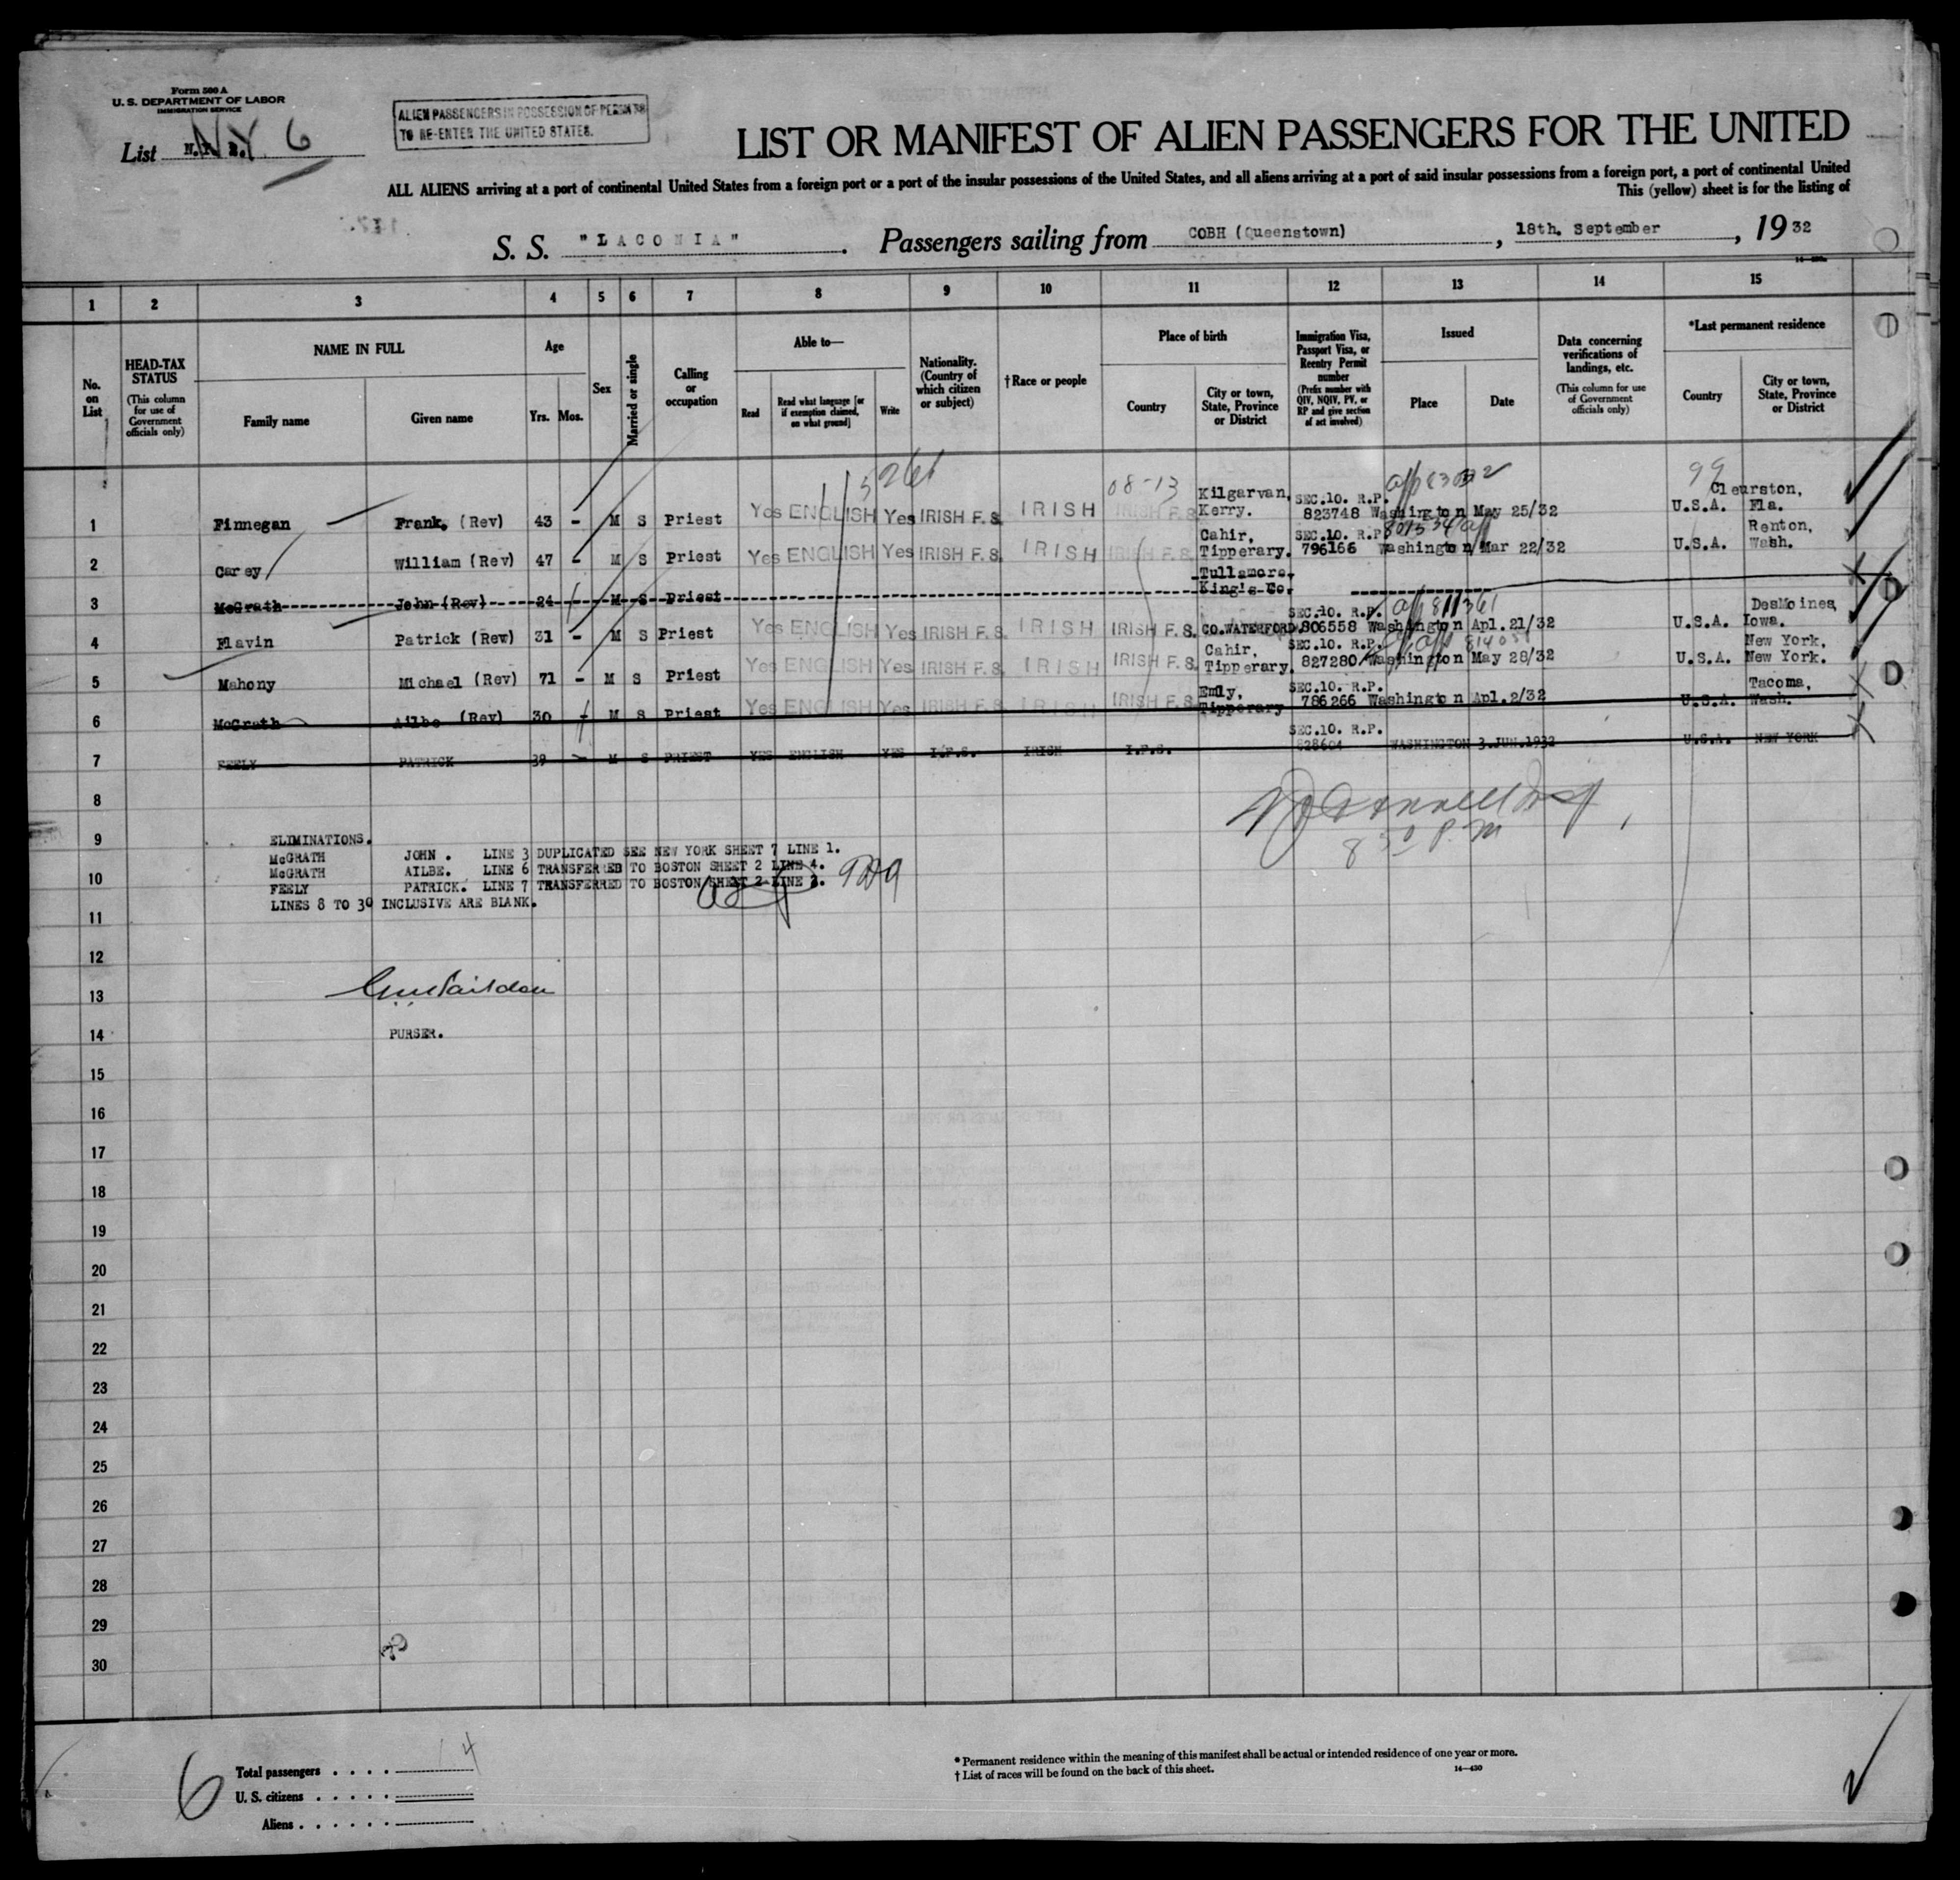 Form 500 A
U. S. DEPARTMENT OF LABOR
IMMIGRATION SERVICE
List N.Y. 6
ALIEN PASSENGERS IN POSSESSION OF PERMITS
TO RE-ENTER THE UNITED STATES.
LIST OR MANIFEST OF ALIEN PASSENGERS FOR THE UNITED
ALL ALIENS arriving at a port of continental United States from a foreign port or a port of the insular possessions of the United States, and all aliens arriving at a port of said insular possessions from a foreign port, a port of continental United
This (yellow) sheet is for the listing of
S. S. "LACONIA". Passengers sailing from COBH (Queenstown), 18th. September, 1932
1 2 3 4 5 6 7 8 9 10 11 12 13 14 15
No. on List
HEAD-TAX STATUS (This column for use of Government officials only)
NAME IN FULL
Family name Given name
Age
Yrs. Mos.
Sex
Married or single
Calling or occupation
Able to—
Read Read what language [or if exemption claimed, on what ground] Write
Nationality. (Country of which citizen or subject)
†Race or people
Place of birth
Country City or town, State, Province or District
Immigration Visa, Passport Visa, or Reentry Permit number (Prefix number with QIV, NQIV, PV, or RP and give section of act involved)
Issued
Place Date
Data concerning verifications of landings, etc. (This column for use of Government officials only)
*Last permanent residence
Country City or town, State, Province or District
5261 08-13 99
1 Finnegan Frank, (Rev) 43 - M S Priest Yes ENGLISH Yes IRISH F.S. IRISH IRISH F.S. Kilgarvan, Kerry. SEC.10. R.P. 823748 Washington May 25/32 U.S.A. Clewiston, Fla.
2 Carey William (Rev) 47 - M S Priest Yes ENGLISH Yes IRISH F.S. IRISH IRISH F.S. Cahir, Tipperary. SEC.10. R.P. 796166 Washington Mar 22/32 U.S.A. Renton, Wash.
3 McGrath John (Rev) 24 M S Priest Tullamore, King's Co.
4 Flavin Patrick (Rev) 31 - M S Priest Yes ENGLISH Yes IRISH F.S. IRISH IRISH F.S. CO.WATERFORD. SEC.10. R.P. 806558 Washington Apl.21/32 U.S.A. DesMoines, Iowa.
5 Mahony Michael (Rev) 71 - M S Priest Yes ENGLISH Yes IRISH F.S. IRISH IRISH F.S. Cahir, Tipperary. SEC.10. R.P. 827280 Washington May 28/32 U.S.A. New York, New York.
6 McGrath Ailbe (Rev) 30 - M S Priest Yes ENGLISH Yes IRISH F.S. IRISH IRISH F.S. Emly, Tipperary SEC.10. R.P. 786266 Washington Apl.2/32 U.S.A. Tacoma, Wash.
7 FEELY PATRICK 39 - M S PRIEST YES ENGLISH YES I.F.S. IRISH I.F.S. SEC.10. R.P. 828604 WASHINGTON 3.JUN.1932 U.S.A. NEW YORK
8
8 30 P.M
9 ELIMINATIONS.
McGRATH JOHN. LINE 3 DUPLICATED SEE NEW YORK SHEET 7 LINE 1.
McGRATH AILBE. LINE 6 TRANSFERRED TO BOSTON SHEET 2 LINE 4.
10 FEELY PATRICK. LINE 7 TRANSFERRED TO BOSTON SHEET 2 LINE 3.
LINES 8 TO 30 INCLUSIVE ARE BLANK.
11
12
13
14 PURSER.
15
16
17
18
19
20
21
22
23
24
25
26
27
28
29
30
6
Total passengers . . . . 14
U. S. citizens . . . . .
Aliens . . . . . .
* Permanent residence within the meaning of this manifest shall be actual or intended residence of one year or more.
† List of races will be found on the back of this sheet.
14—430